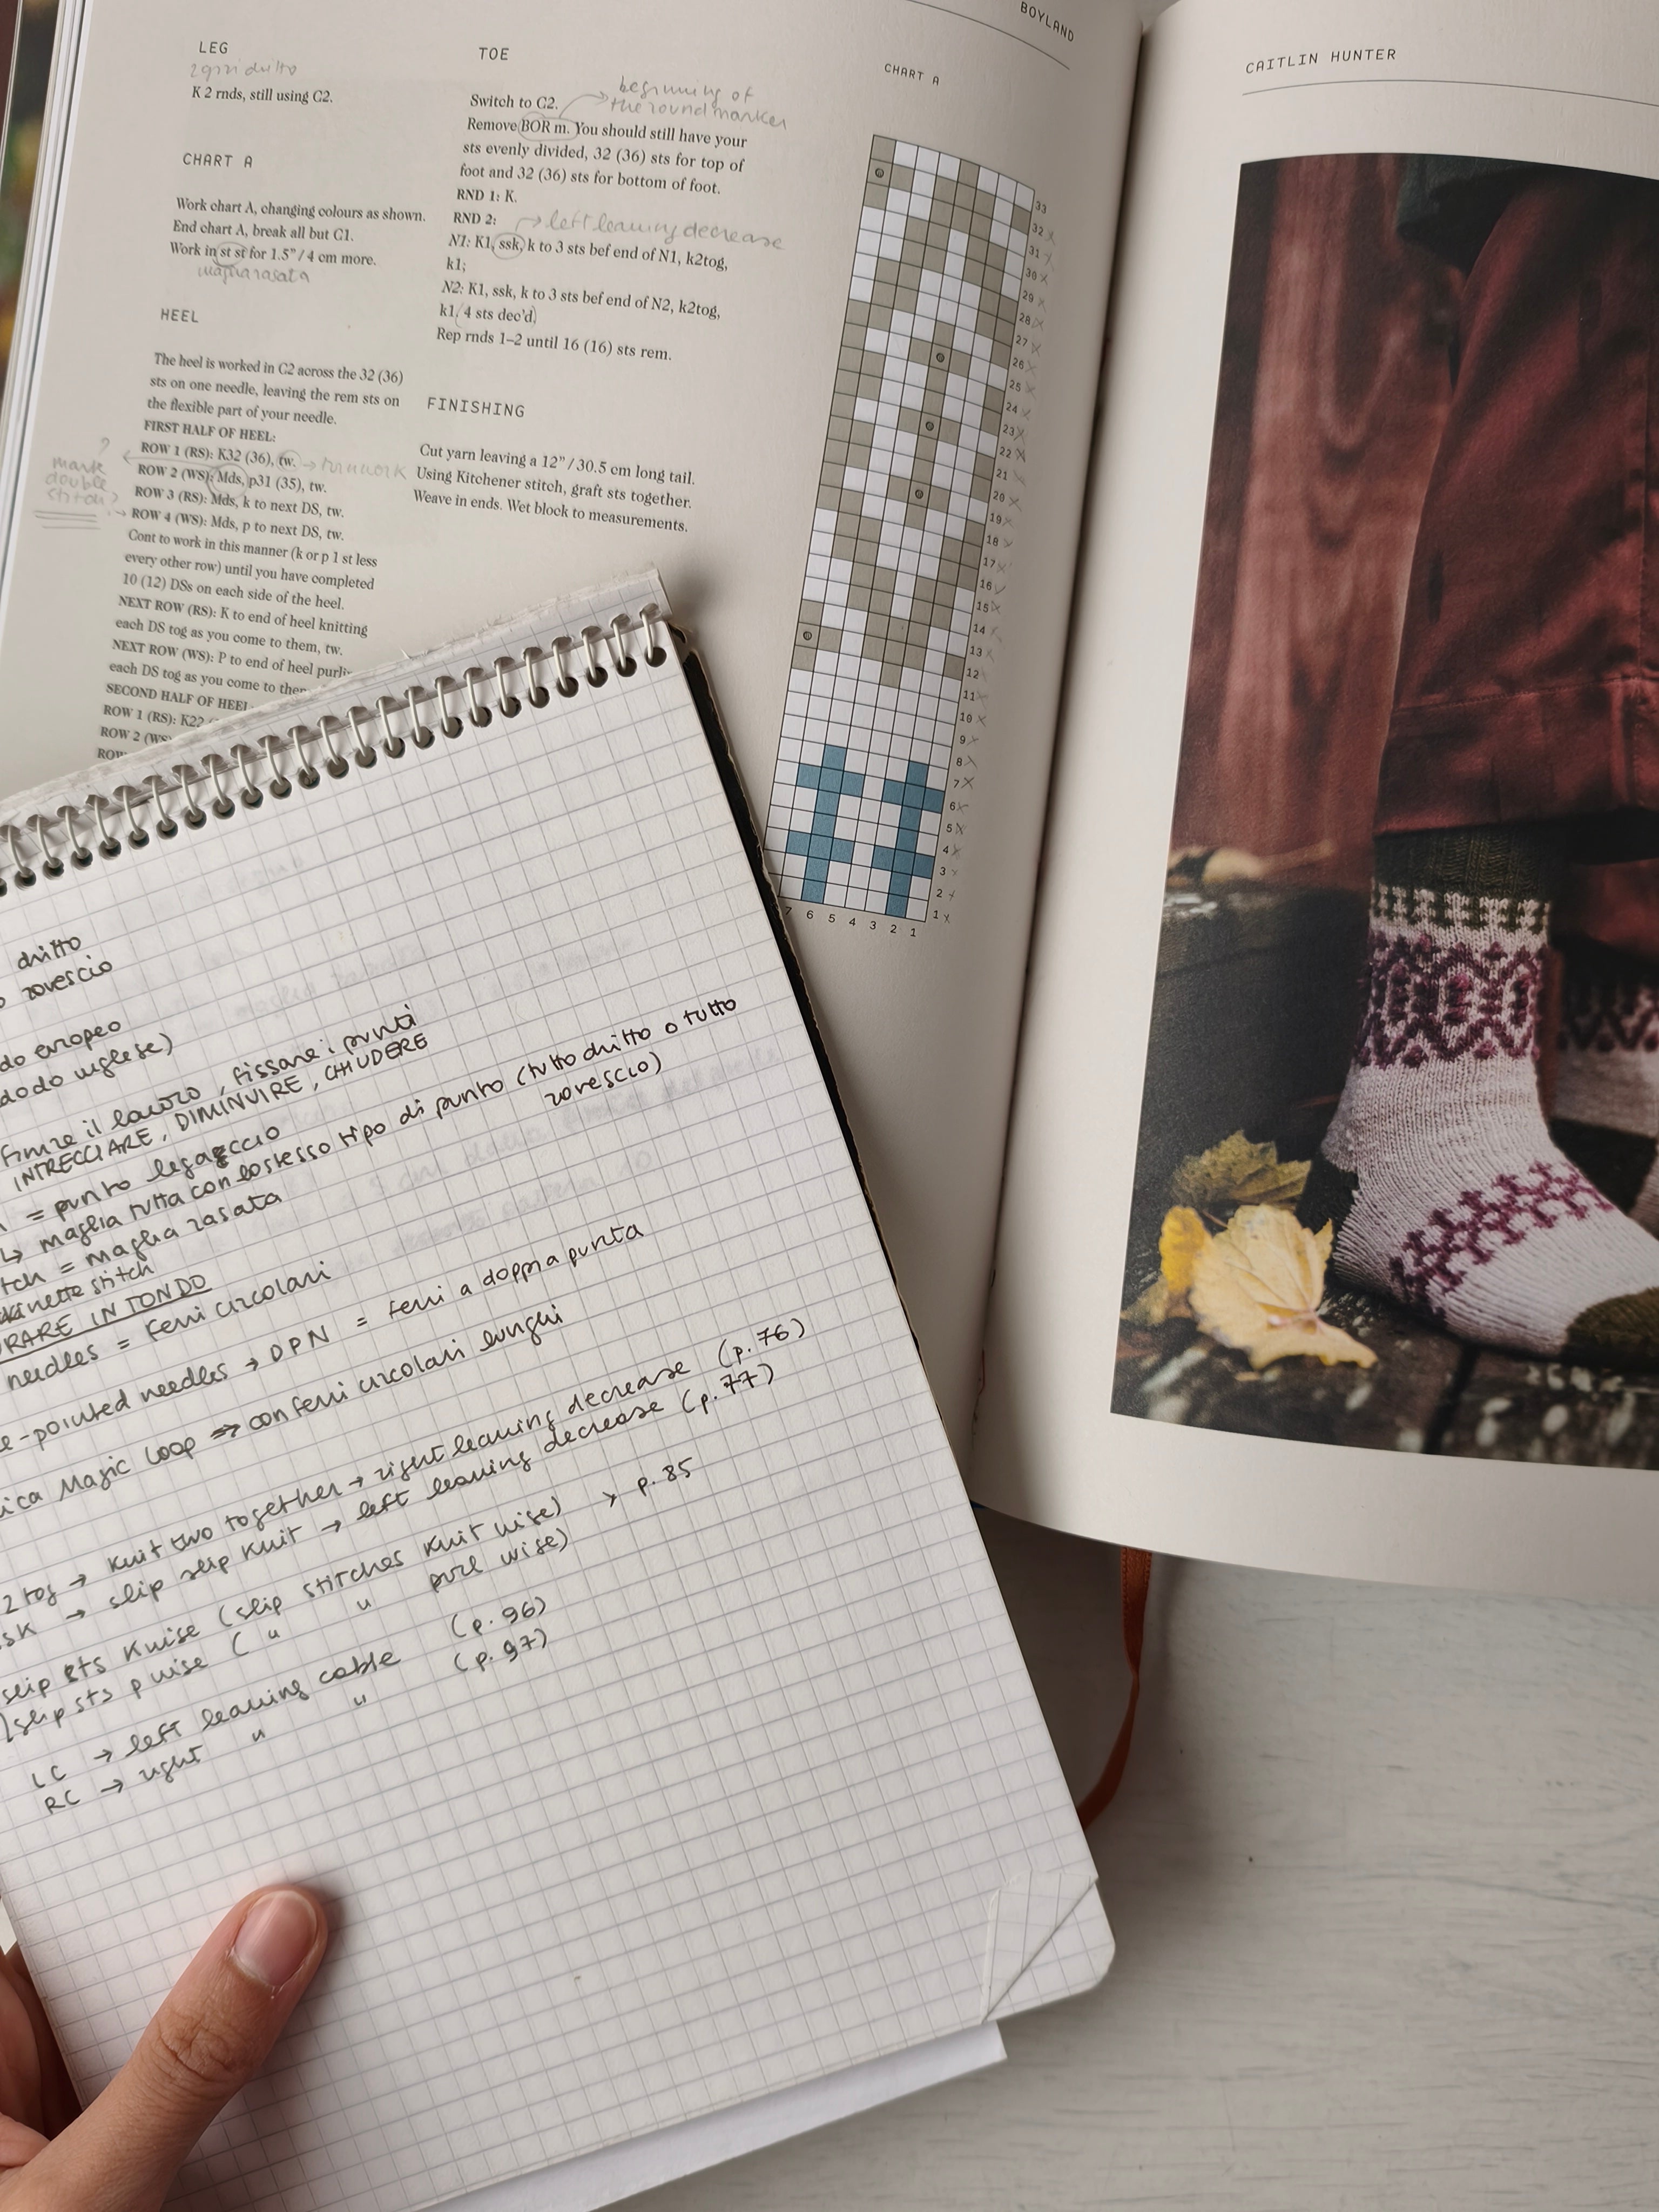 BOYLAND
LEG
2 giri dritto
K 2 rnds, still using C2.
CHART A
Work chart A, changing colours as shown.
End chart A, break all but C1.
Work in st st for 1.5” / 4 cm more.
maglia rasata
HEEL
The heel is worked in C2 across the 32 (36)
sts on one needle, leaving the rem sts on
the flexible part of your needle.
FIRST HALF OF HEEL:
ROW 1 (RS): K32 (36), tw. → turn work
ROW 2 (WS): Mds, p31 (35), tw.
ROW 3 (RS): Mds, k to next DS, tw.
ROW 4 (WS): Mds, p to next DS, tw.
?
mark
double
stitch?
Cont to work in this manner (k or p 1 st less
every other row) until you have completed
10 (12) DSs on each side of the heel.
NEXT ROW (RS): K to end of heel knitting
each DS tog as you come to them, tw.
NEXT ROW (WS): P to end of heel purli
each DS tog as you come to the
SECOND HALF OF HEEL
ROW 1 (RS): K22
ROW 2 (WS
ROW
TOE
Switch to C2.
beginning of
the round marker
Remove BOR m. You should still have your
sts evenly divided, 32 (36) sts for top of
foot and 32 (36) sts for bottom of foot.
RND 1: K.
RND 2:
→ left leaning decrease
N1: K1, ssk, k to 3 sts bef end of N1, k2tog,
k1;
N2: K1, ssk, k to 3 sts bef end of N2, k2tog,
k1. (4 sts dec’d)
Rep rnds 1–2 until 16 (16) sts rem.
FINISHING
Cut yarn leaving a 12” / 30.5 cm long tail.
Using Kitchener stitch, graft sts together.
Weave in ends. Wet block to measurements.
CHART A
33
32
31
30
29
28
27
26
25
24
23
22
21
20
19
18
17
16
15
14
13
12
11
10
9
8
7
6
5
4
3
2
1
7 6 5 4 3 2 1
CAITLIN HUNTER
dritto
rovescio
do europeo
dodo inglese)
finire il lavoro, fissare i punti
INTRECCIARE, DIMINUIRE, CHIUDERE
= punto legaccio
↳ maglia tutta con lo stesso tipo di punto (tutto dritto o tutto
rovescio)
tch = maglia rasata
kinette stitch
RARE IN TONDO
needles = ferri circolari
e-pointed needles → DPN = ferri a doppia punta
ica Magic Loop => con ferri circolari lunghi
2 tog → knit two together → right leaning decrease (p. 76)
sk → slip slip knit → left leaning decrease (p. 77)
slip sts kwise (slip stitches knit wise) > p. 85
slip sts pwise ( " " purl wise)
LC → left leaning cable (p. 96)
RC → right " " (p. 97)